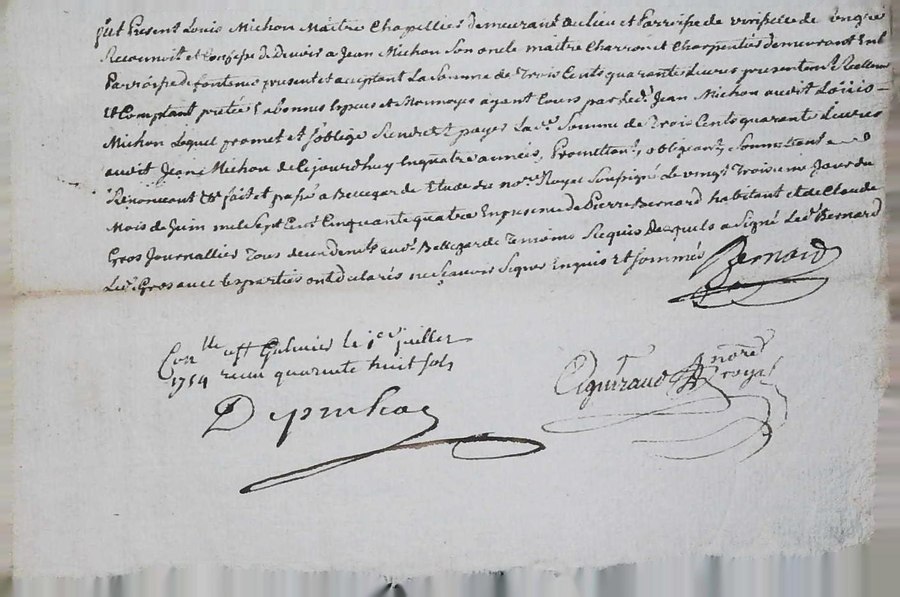 fut Present Louis Michon Maitre Chapellier demeurant au lieu et Parroisse de de
Reconnoit et Confesse de Devoir a Jean Michon Son oncle maitre Charron et Charpentier demeurant
Parroisse de fontenes present et acceptant La Somme de Trois Cents quarante Livres presentem.t Reellem.t
Et Comptant pretée Bonnes Especes et Monnoyes ayant Cours par led.t Jean Michon audit Louis
Michon Lequel promet et s'oblige payer Lad.e Somme de Trois Cents quarante Livres
audit Jean Michon de Cejourdhuy En quatre années, Promettant, obligeant, Soumettant
Renoncant &c fait et passé a Bellegarde Etude du no.re Royal Soussigné Le vingt Troisieme Jour du
Mois de Juin mil Sept Cent Cinquante quatre En presence de Pierre Bernard habitant et de Claude
Gros Journallier Tous deux dem.ts aud.t Bellegarde Temoins Requis Desquels a Signé Led.t Bernard
Led.t Gros avec Les parties ont declarés ne Scavoir Signer Enquis Et Sommés
Bernard
Con.lle a S.t Galmier le 1er juillet
1754 recu quarente huit sols
Aguiraud Nore royal